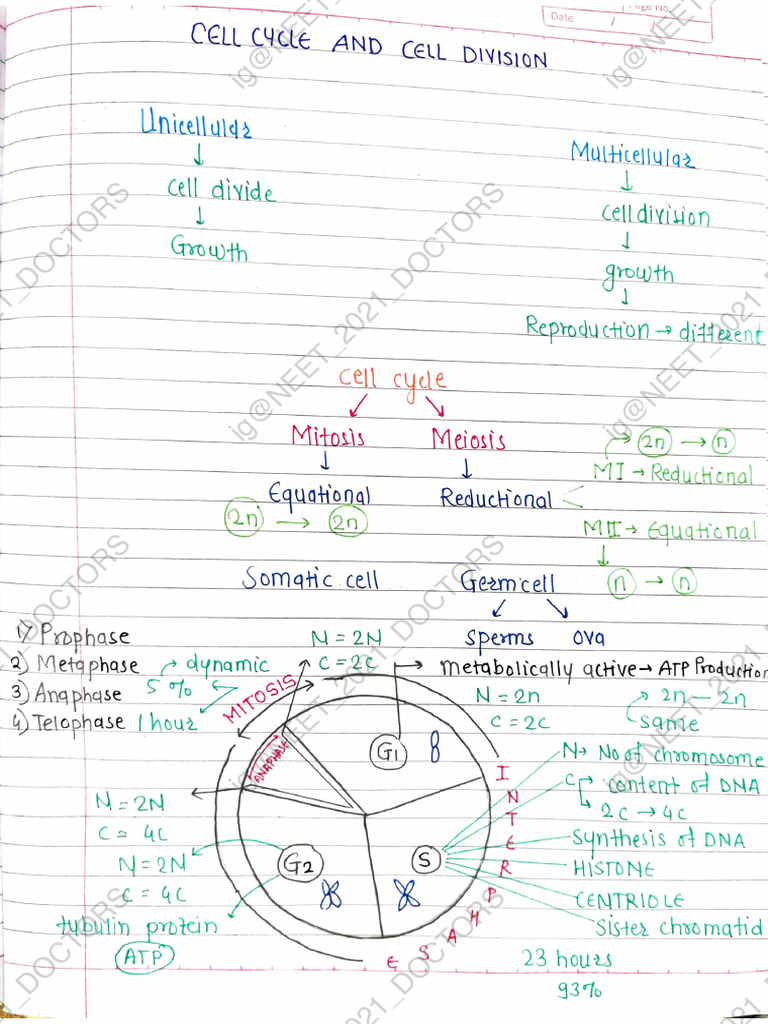 Page No.
Date / /
CELL CYCLE AND CELL DIVISION
Unicellular
↓
cell divide
↓
Growth
Multicellular
↓
cell division
↓
growth
↓
Reproduction → different
cell cycle
Mitosis
↓
Equational
2n → 2n
Somatic cell
Meiosis
↓
Reductional
2n → n
MI → Reductional
MII → Equational
n → n
Germcell
sperms ova
1) Prophase
2) Metaphase
3) Anaphase
4) Telophase
dynamic
5%
1 hour
MITOSIS
N = 2N
C = 2C
metabolically active → ATP Production
N = 2n
C = 2C
2n — 2n
same
G1
ANAPHASE
INTERPHASE
N → No of chromosome
C → content of DNA
2C → 4C
Synthesis of DNA
HISTONE
CENTRIOLE
Sister chromatid
S
G2
N = 2N
C = 4C
N = 2N
C = 4C
tubulin protein
ATP
23 hours
93%
ig@NEET_2021_DOCTORS